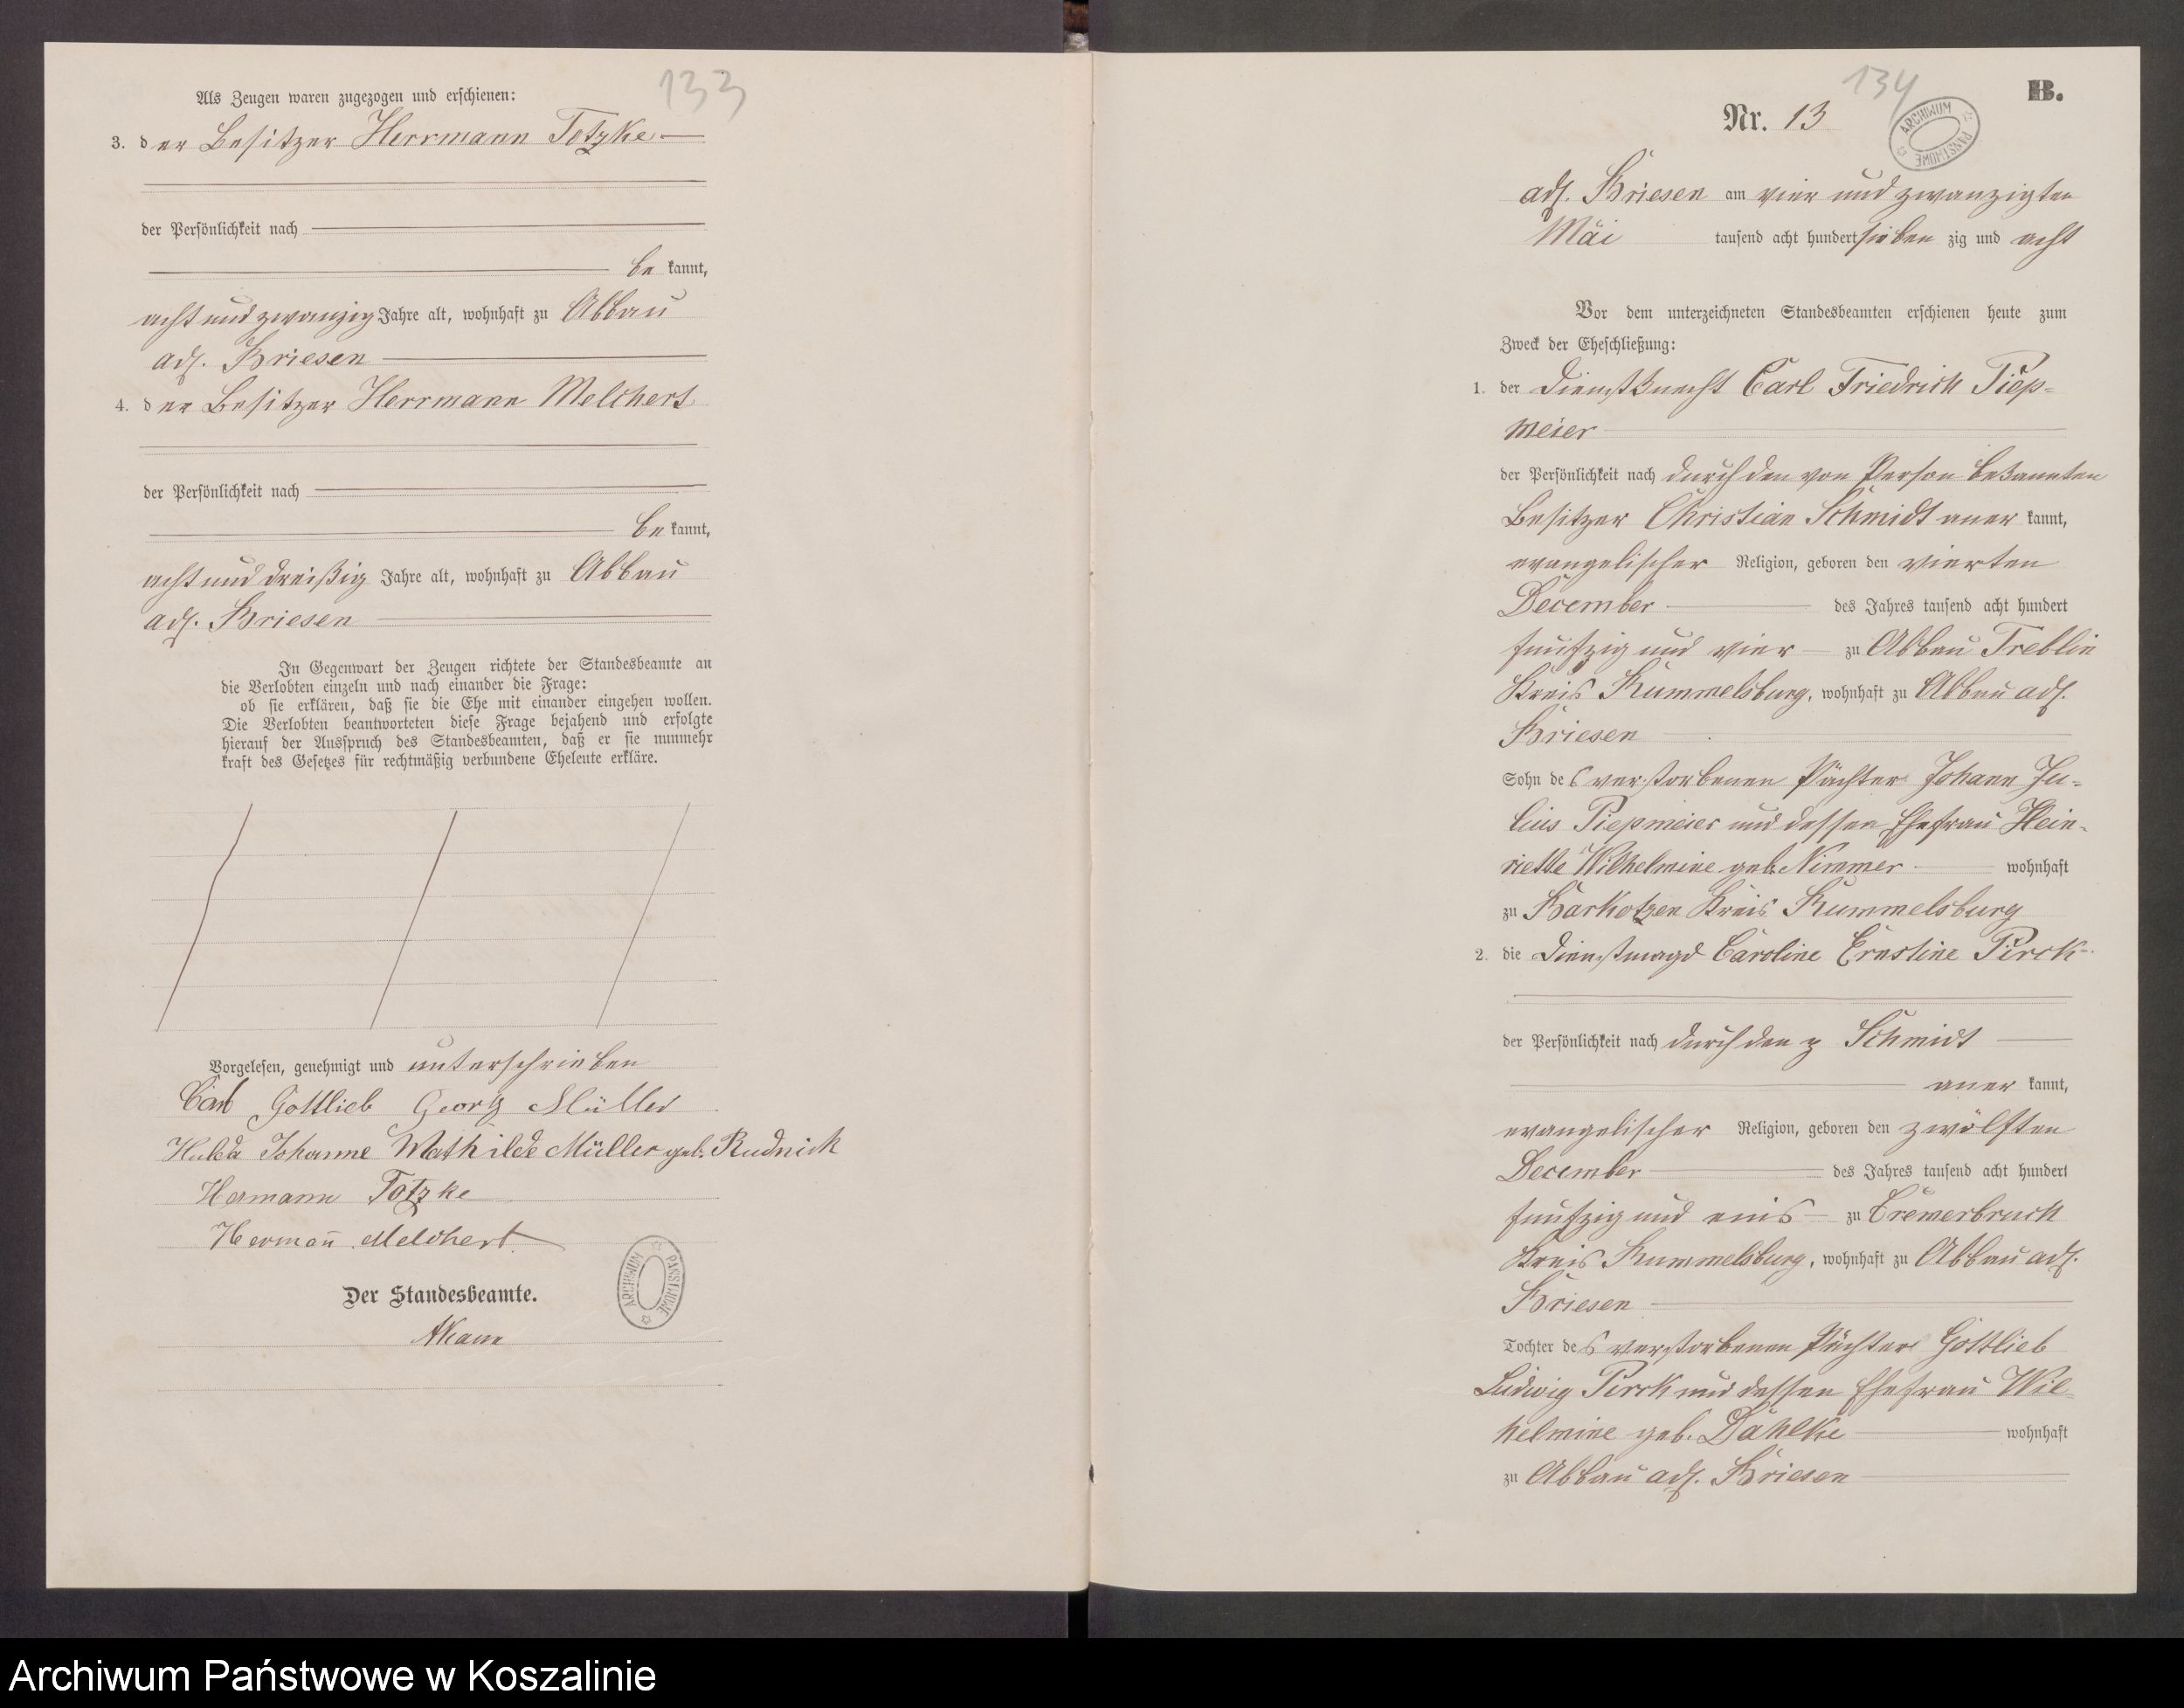 133
Als Zeugen waren zugezogen und erschienen:
3. der Besitzer Herrmann Totzke
der Persönlichkeit nach
be kannt,
acht und zwanzig Jahre alt, wohnhaft zu Abbau
adl. Briesen
4. der Besitzer Herrmann Melchert
der Persönlichkeit nach
be kannt,
acht und dreißig Jahre alt, wohnhaft zu Abbau
adl. Briesen
In Gegenwart der Zeugen richtete der Standesbeamte an
die Verlobten einzeln und nach einander die Frage:
ob sie erklären, daß sie die Ehe mit einander eingehen wollen.
Die Verlobten beantworteten diese Frage bejahend und erfolgte
hierauf der Ausspruch des Standesbeamten, daß er sie nunmehr
kraft des Gesetzes für rechtmäßig verbundene Eheleute erkläre.
Vorgelesen, genehmigt und unterschrieben
Carl Gottlieb Georg Müller
Hulda Johanne Mathilde Müller geb. Rudnick
Hermann Totzke
Hermann Melchert
ARCHIWUM PAŃSTWOWE
Der Standesbeamte.
134
B.
Nr. 13
ARCHIWUM PAŃSTWOWE
adl. Briesen am vier und zwanzigten
Mai tausend acht hundert sieben zig und acht
Vor dem unterzeichneten Standesbeamten erschienen heute zum
Zweck der Eheschließung:
1. der Dienstknecht Carl Friedrich Piep-
meier
der Persönlichkeit nach durch den von Person bekannten
Besitzer Christian Schmidt aner kannt,
evangelischer Religion, geboren den vierten
December des Jahres tausend acht hundert
funfzig und vier zu Abbau Treblin
Kreis Rummelsburg, wohnhaft zu Abbau adl.
Briesen
Sohn des verstorbenen Pächter Johann Ju-
lius Piepmeier und dessen Ehefrau Hein-
riette Wilhelmine geb. Nimmer wohnhaft
zu Barkotzen Kreis Rummelsburg
2. die Dienstmagd Caroline Ernstine Pirck
der Persönlichkeit nach durch den Schmidt
aner kannt,
evangelischer Religion, geboren den zwölften
December des Jahres tausend acht hundert
funfzig und eins zu Cremerbruch
Kreis Rummelsburg, wohnhaft zu Abbau adl.
Briesen
Tochter des verstorbenen Pächters Gottlieb
Ludwig Pirck und dessen Ehefrau Wil-
helmine geb. Dahlke wohnhaft
zu Abbau adl. Briesen
Archiwum Państwowe w Koszalinie